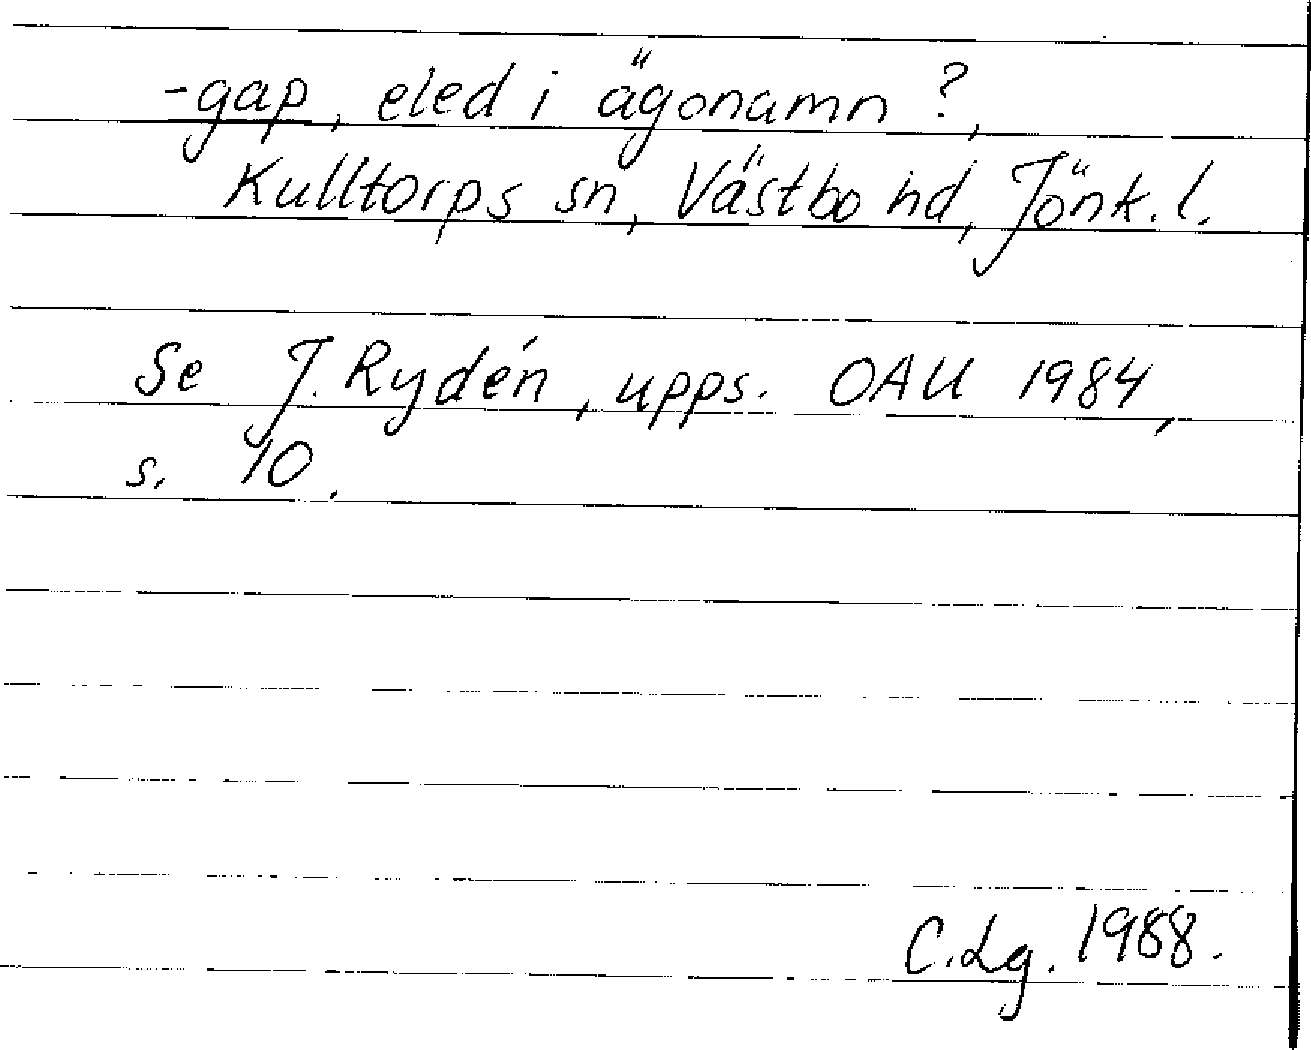 -gap, eled i ägonamn?,
Kulltorps sn, Västbo hd, Jönk. l.
Se J. Rydén, upps. OAU 1984,
s. 10.
C.Lg. 1988.